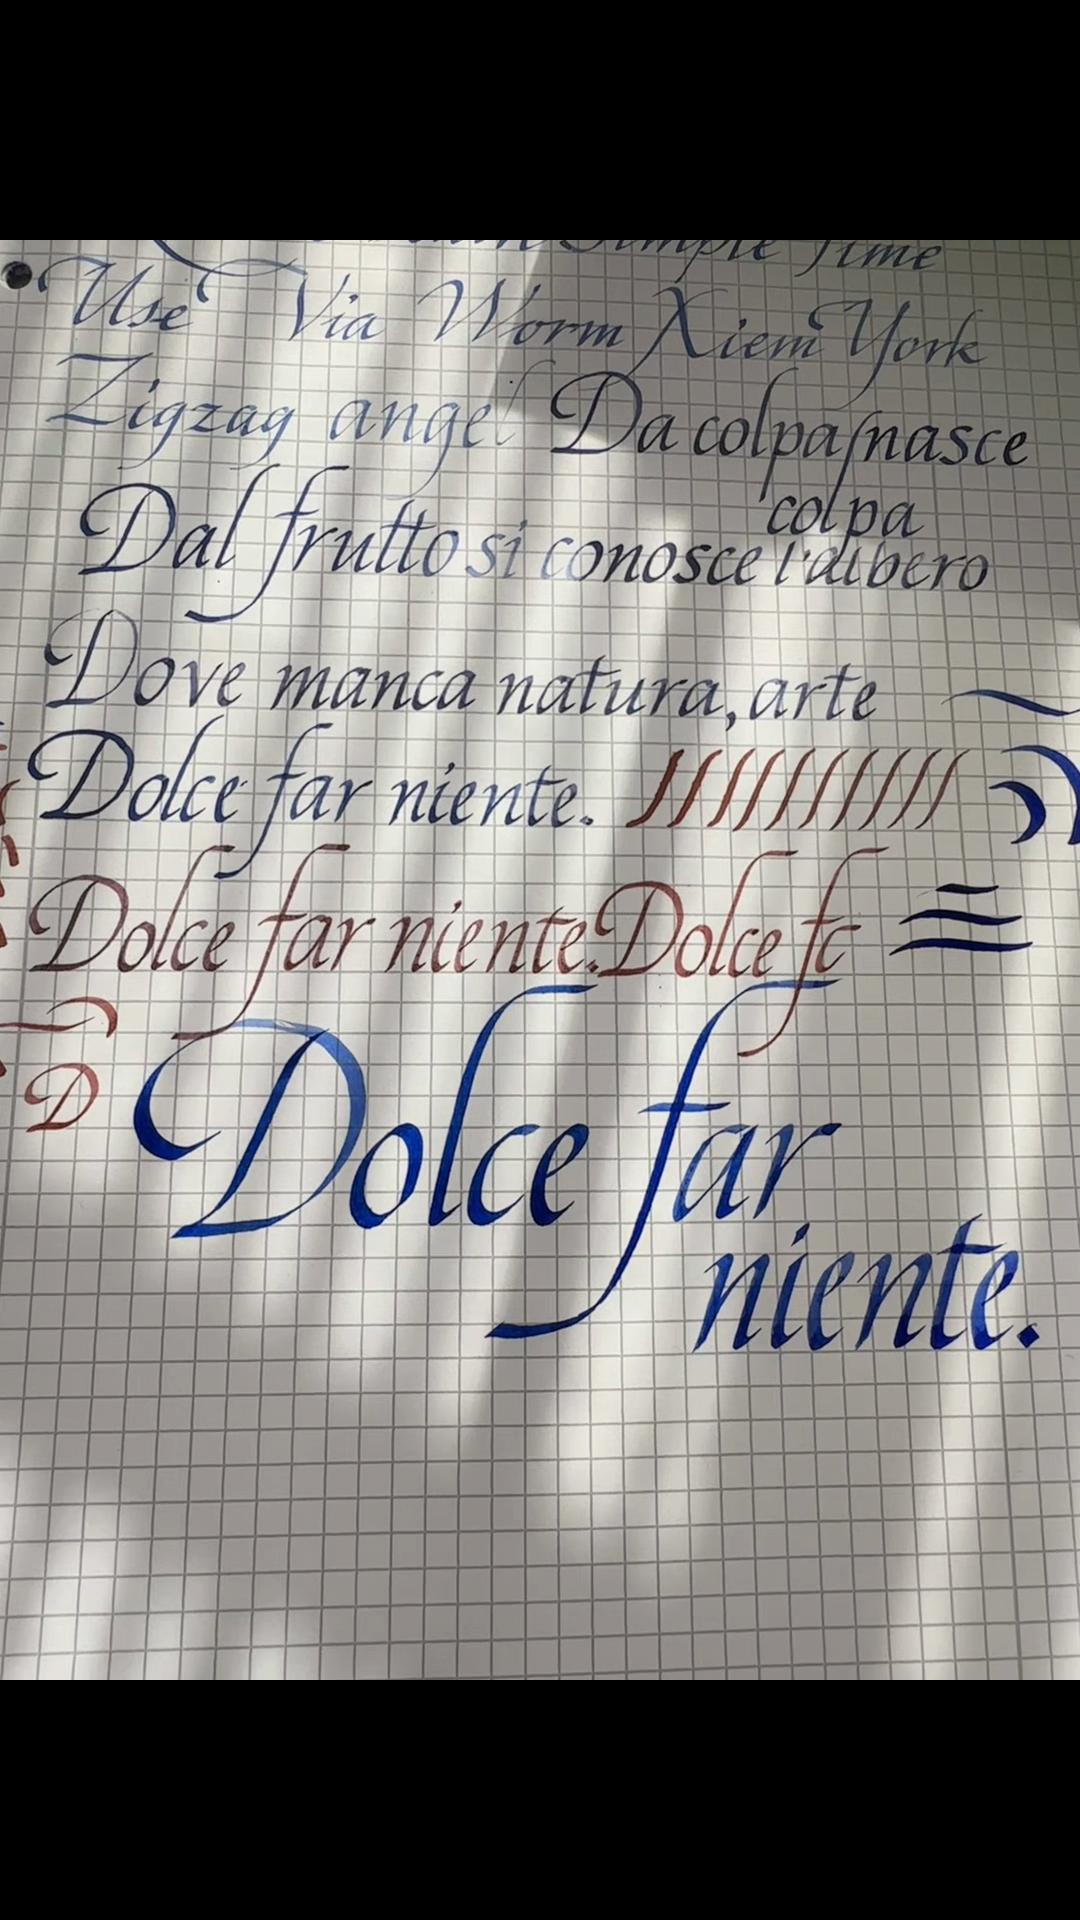 Simple Time
Use Via Worm Xiem York
Zigzag angel Da colpa nasce
colpa
Dal frutto si conosce l'albero
Dove manca natura, arte
Dolce far niente.
Dolce far niente. Dolce fc
D
Dolce far
niente.